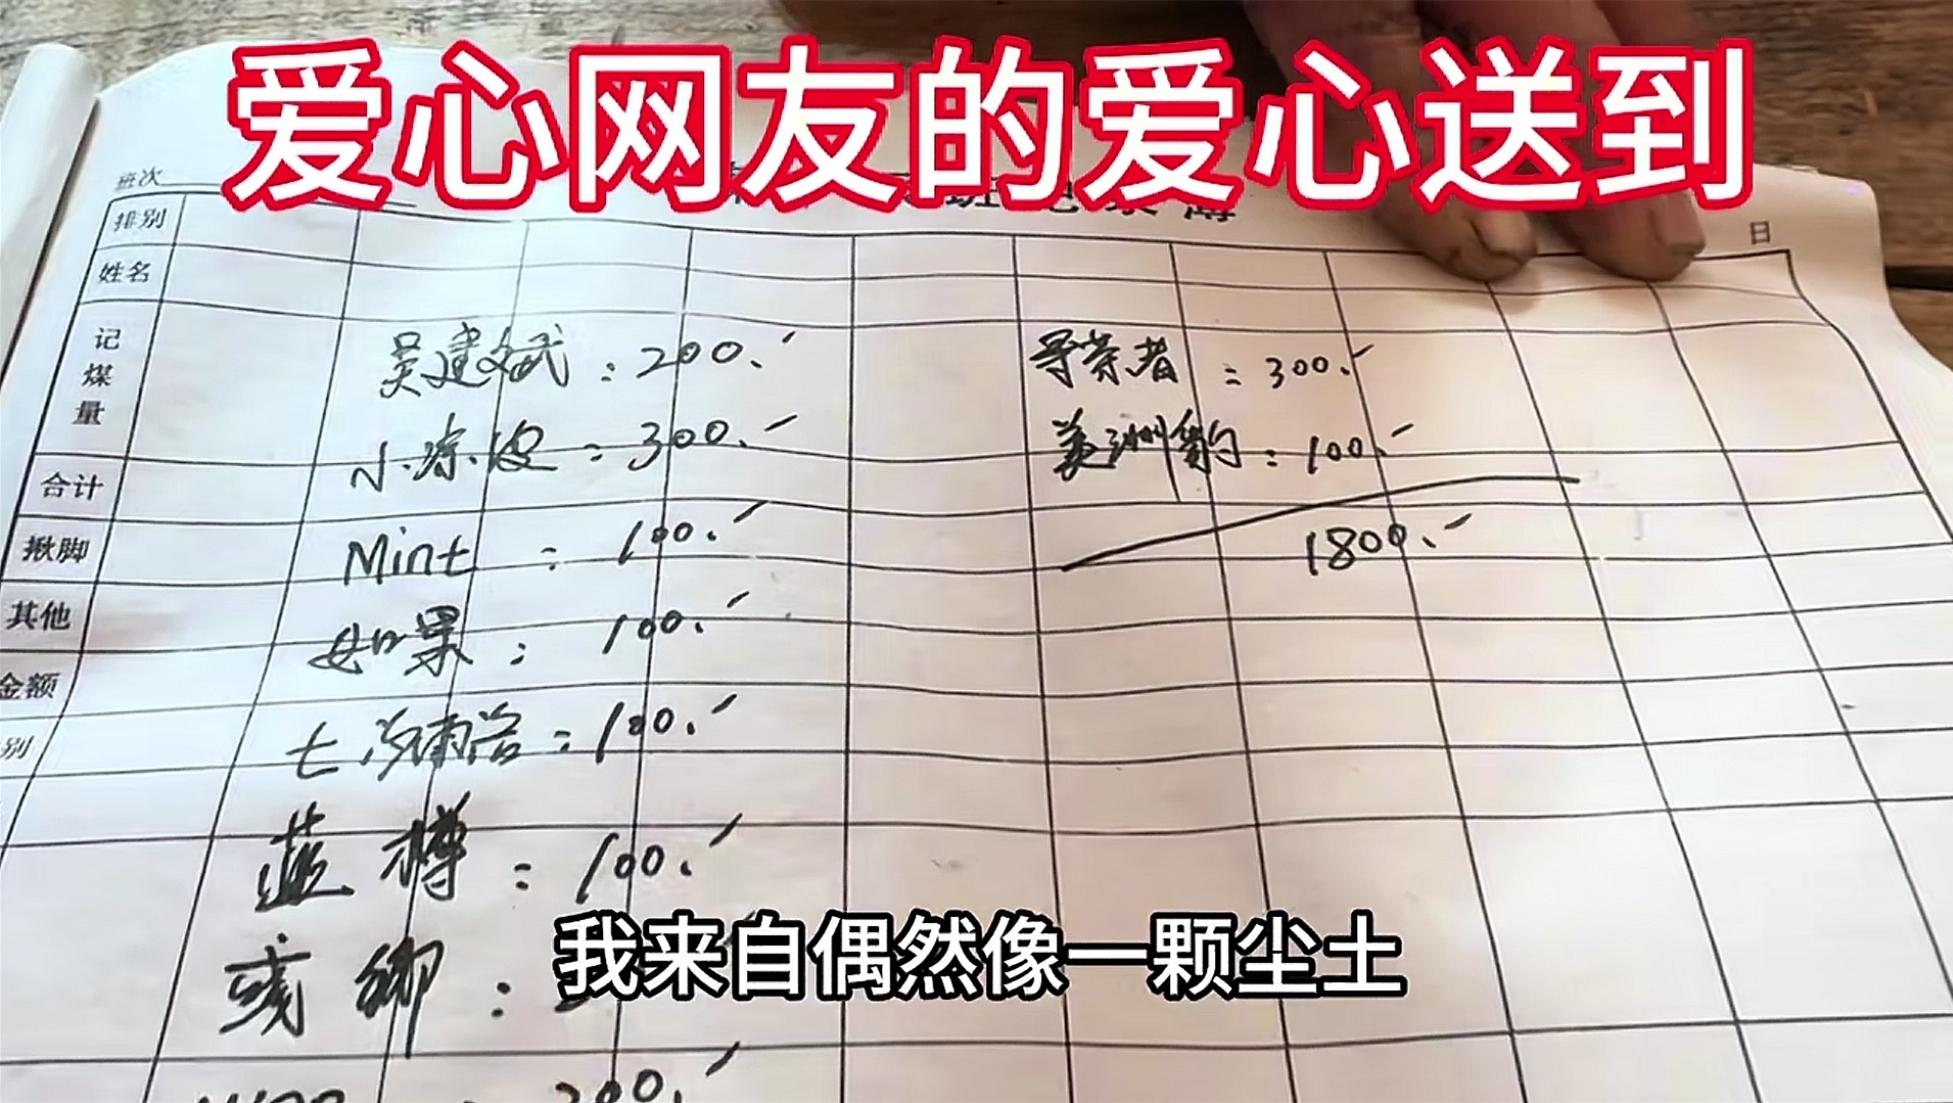 爱心网友的爱心送到
班次
日
排别
姓名
记煤量
合计
揪脚
其他
金额
别
吴建斌：200.
小冻皮：300.
Mint：100.
如果：100.
七总南浴：100.
蓝樽：100.
彧卿：
200.
导航者：300.
美洲豹：100.
1800.
我来自偶然像一颗尘土